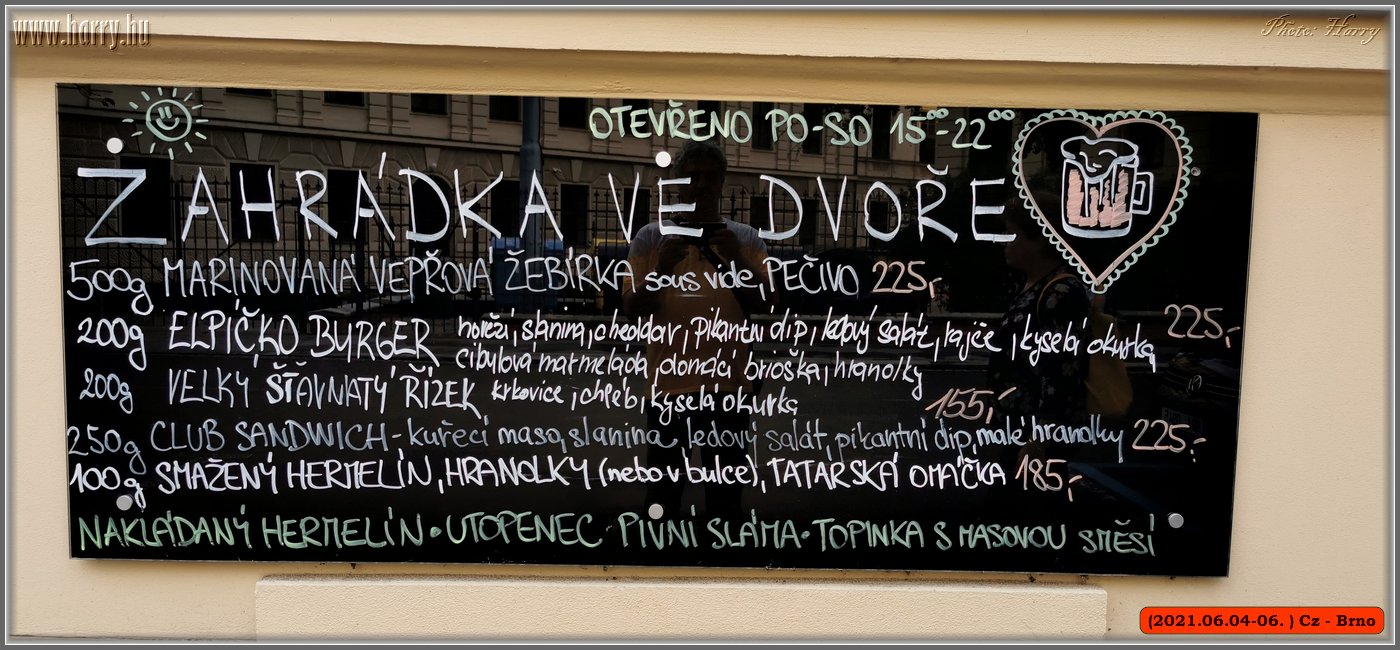 www.harry.hu
Photo: Harry
OTEVŘENO PO-SO 15⁰⁰-22⁰⁰
ZAHRÁDKA VE DVOŘE
500g MARINOVANÁ VEPŘOVÁ ŽEBÍRKA sous vide, PEČIVO 225,-
200g ELPÍČKO BURGER hovězí, slanina, cheddar, pikantní dip, ledový salát, rajče, kyselá okurka, 225,-
cibulová marmeláda, domácí brioška, hranolky
200g VELKÝ ŠŤAVNATÝ ŘÍZEK krkovice, chléb, kyselá okurka 155,-
250g CLUB SANDWICH - kuřecí maso, slanina, ledový salát, pikantní dip, malé hranolky 225,-
100g SMAŽENÝ HERMELÍN, HRANOLKY (nebo v bulce), TATARSKÁ OMÁČKA 185,-
NAKLÁDANÝ HERMELÍN • UTOPENEC • PIVNÍ SLÁMA • TOPINKA S MASOVOU SMĚSÍ
(2021.06.04-06. ) Cz - Brno